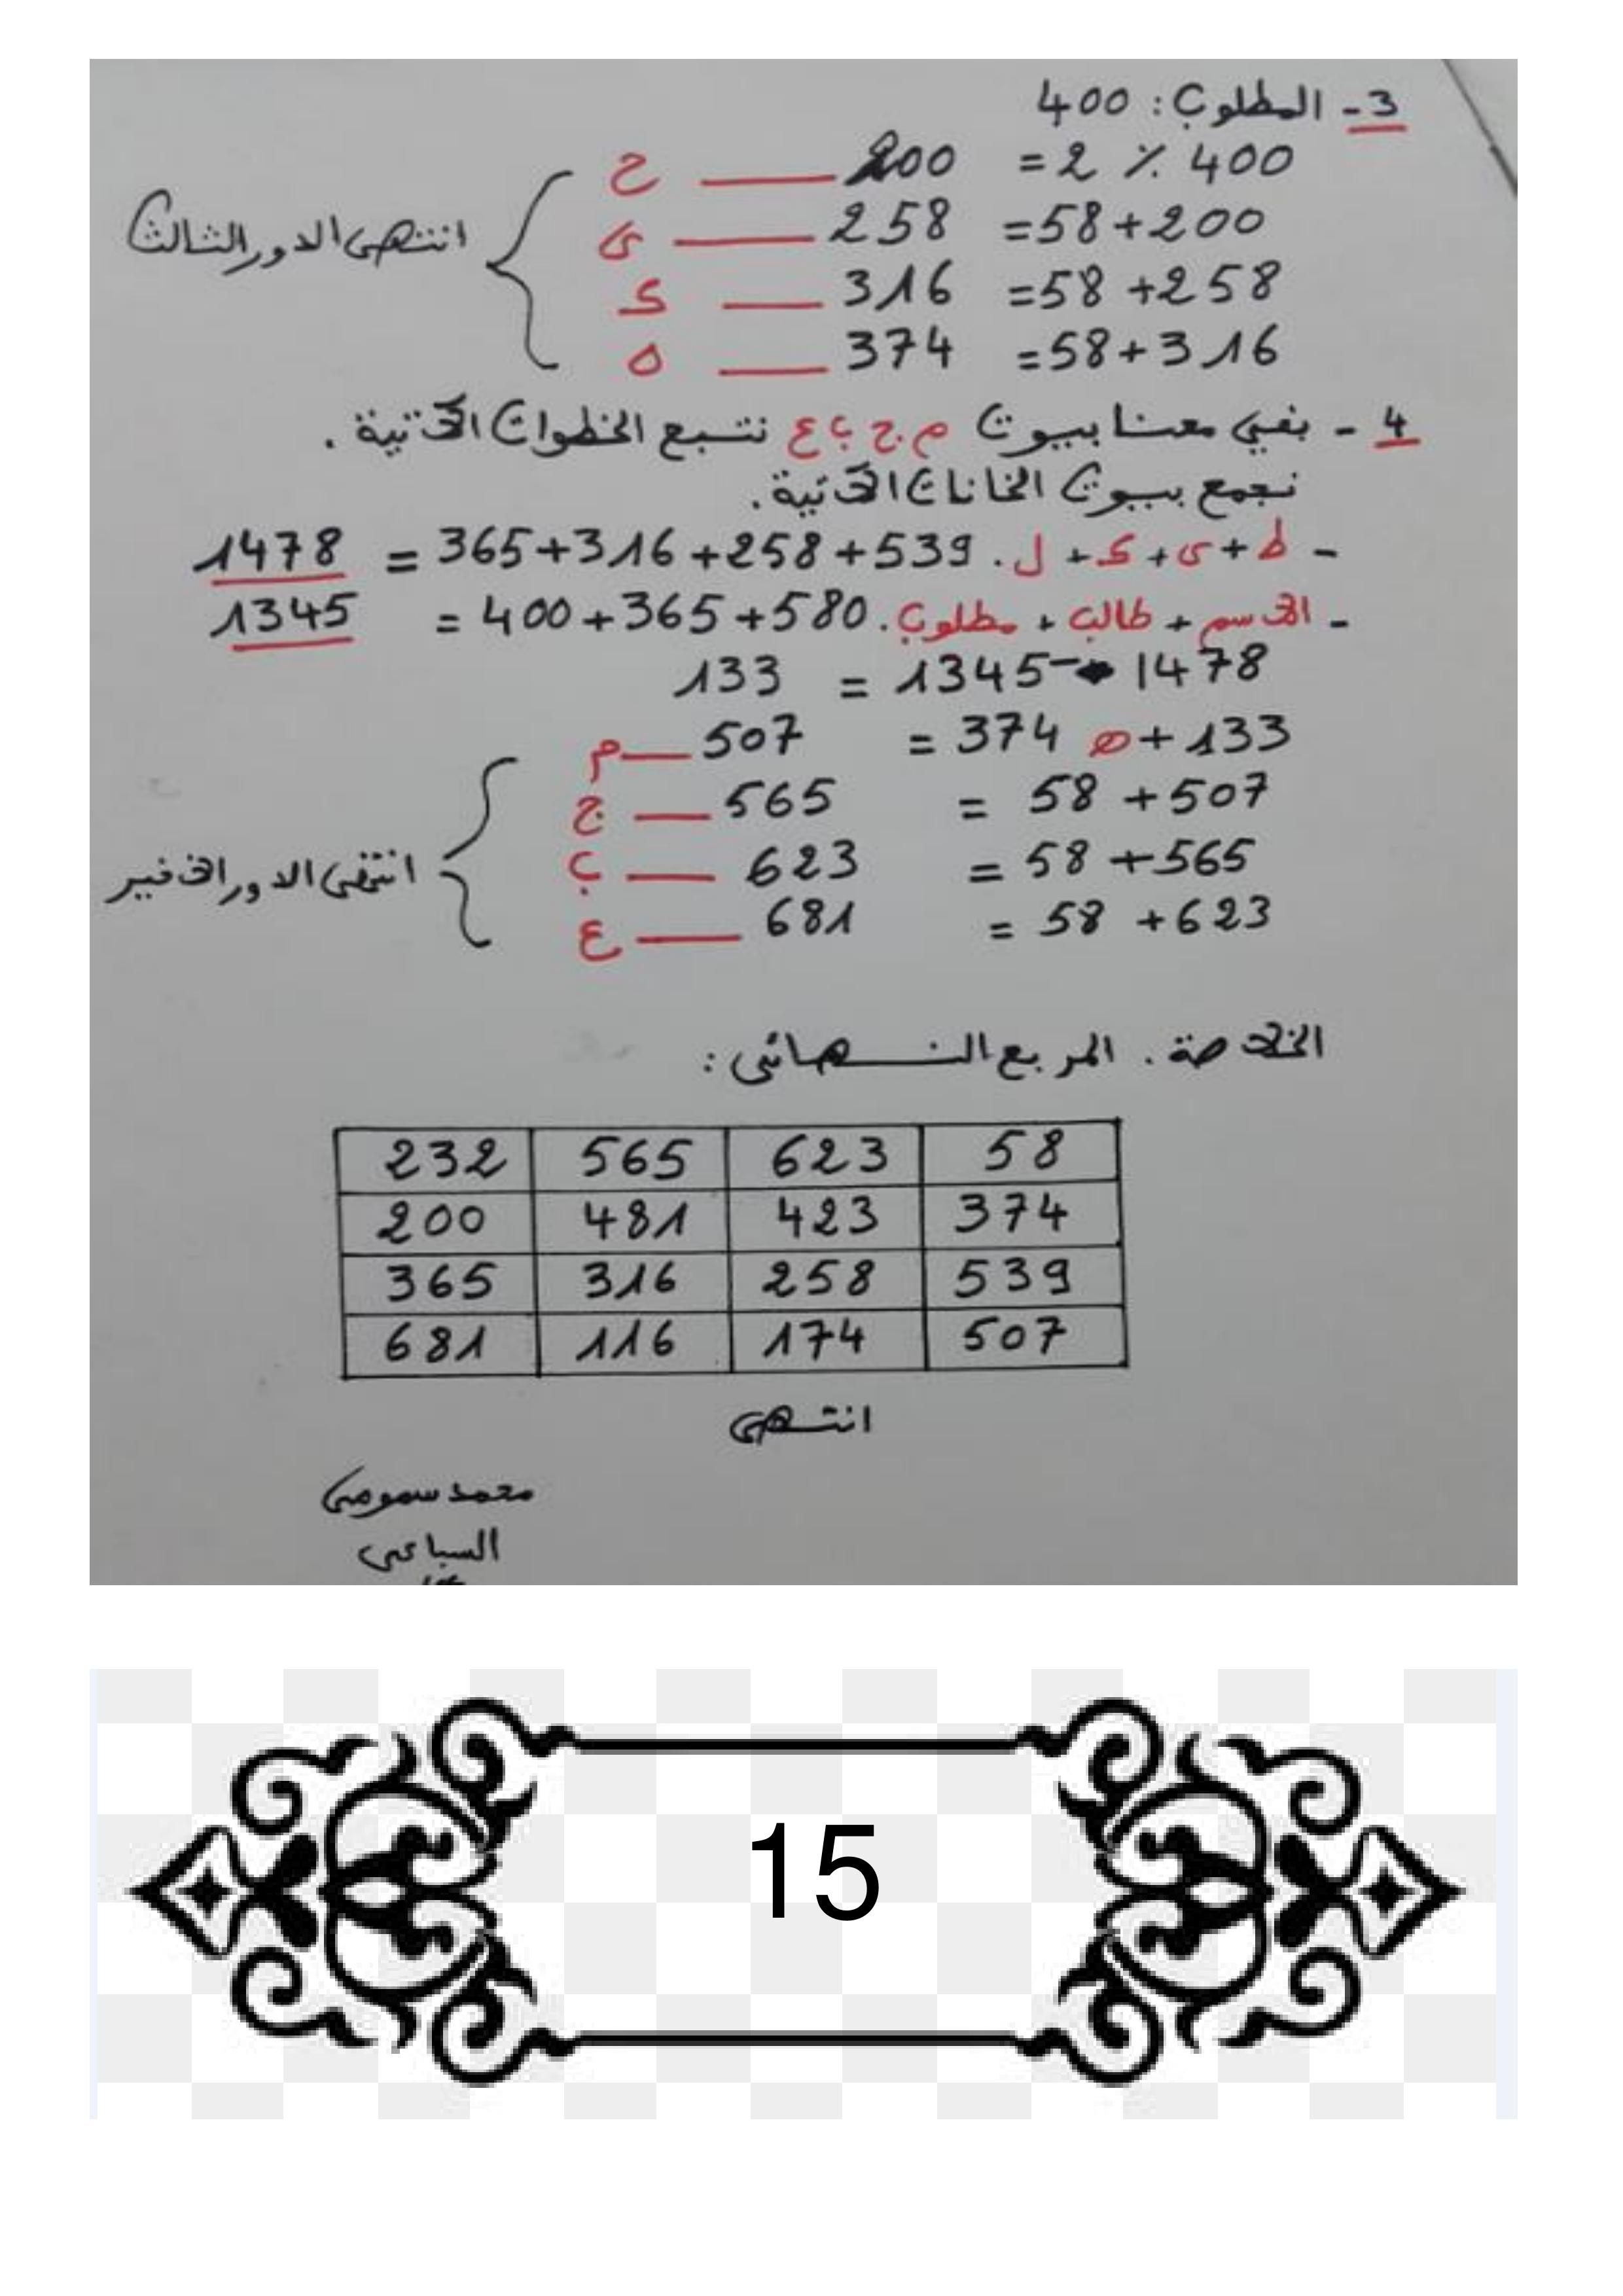 3- المطلوب: 400
400 ٪ 2 = 200 — ح
200+58 = 258 — ى
258+58 = 316 — ك
316+58 = 374 — ه
انتهى الدور الثالث
4 - بقي معنا بيوت م ج ب ع نتبع الخطوات الآتية .
نجمع بيوت الخانات الآتية .
- ط+ى+ك+ل . 539+258+316+365 = 1478
- الاسم + طالب + مطلوب . 580+365+400 = 1345
1478 - 1345 = 133
133 + ه 374 = 507 — م
507 + 58 = 565 — ج
565 + 58 = 623 — ب
623 + 58 = 681 — ع
انتهى الدور الاخير
الخلاصة . المربع النهائي :
58 623 565 232
374 423 481 200
539 258 316 365
507 174 116 681
انتهى
محمد سمومي
السباعي
15